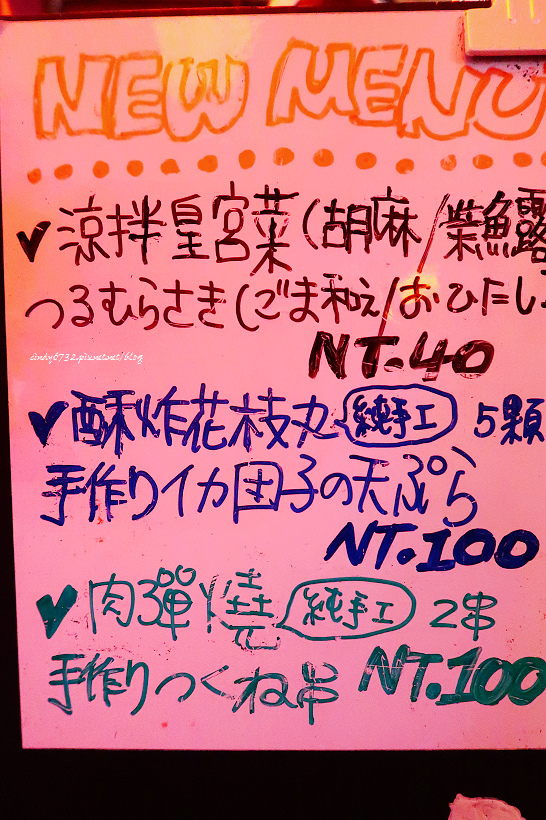 NEW MENU
✓涼拌皇宮菜(胡麻/柴魚露
つるむらさき(ごま和え/おひたし
cindy6732.pixnet.net/blog
NT.40
✓酥炸花枝丸 純手工 5顆
手作りイカ団子の天ぷら
NT.100
✓肉彈燒 純手工 2串
手作りつくね串 NT.100